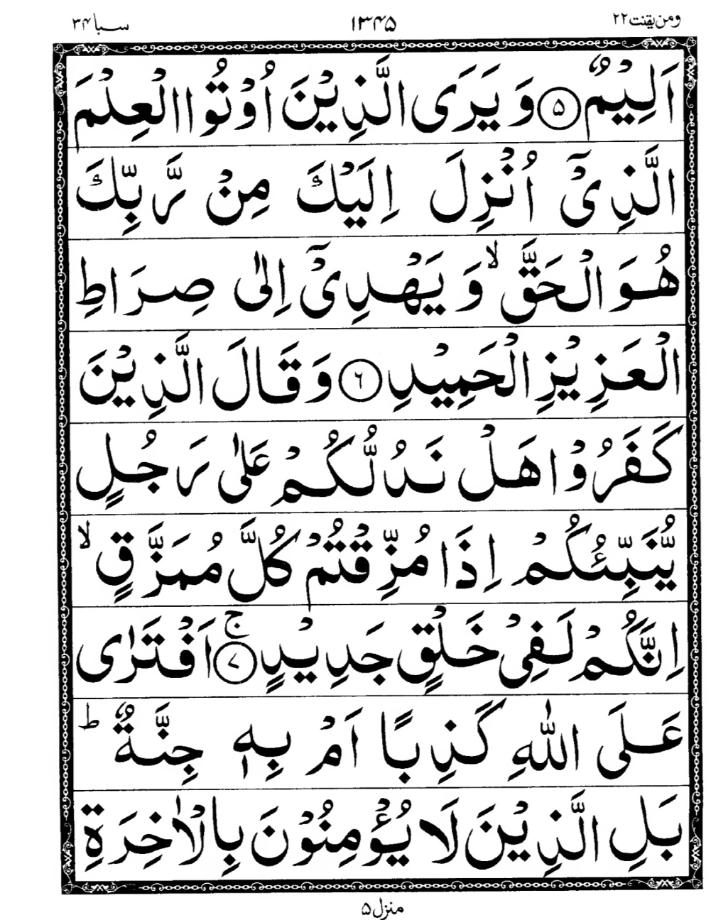 ومن یقنت ۲۲ ۱۳۴۵ سبا ۳۴
اَلِیْمٌ ۝۵ وَ یَرَی الَّذِیْنَ اُوْتُوا الْعِلْمَ
الَّذِیْۤ اُنْزِلَ اِلَیْكَ مِنْ رَّبِّكَ
هُوَ الْحَقَّ ۙ وَ یَهْدِیْۤ اِلٰی صِرَاطِ
الْعَزِیْزِ الْحَمِیْدِ ۝۶ وَ قَالَ الَّذِیْنَ
كَفَرُوْا هَلْ نَدُلُّكُمْ عَلٰی رَجُلٍ
یُّنَبِّئُكُمْ اِذَا مُزِّقْتُمْ كُلَّ مُمَزَّقٍ ۙ
اِنَّكُمْ لَفِیْ خَلْقٍ جَدِیْدٍ ۝۷ۚ اَفْتَرٰی
عَلَی اللّٰهِ كَذِبًا اَمْ بِهٖ جِنَّةٌ ؕ
بَلِ الَّذِیْنَ لَا یُؤْمِنُوْنَ بِالْاٰخِرَةِ
منزل ۵